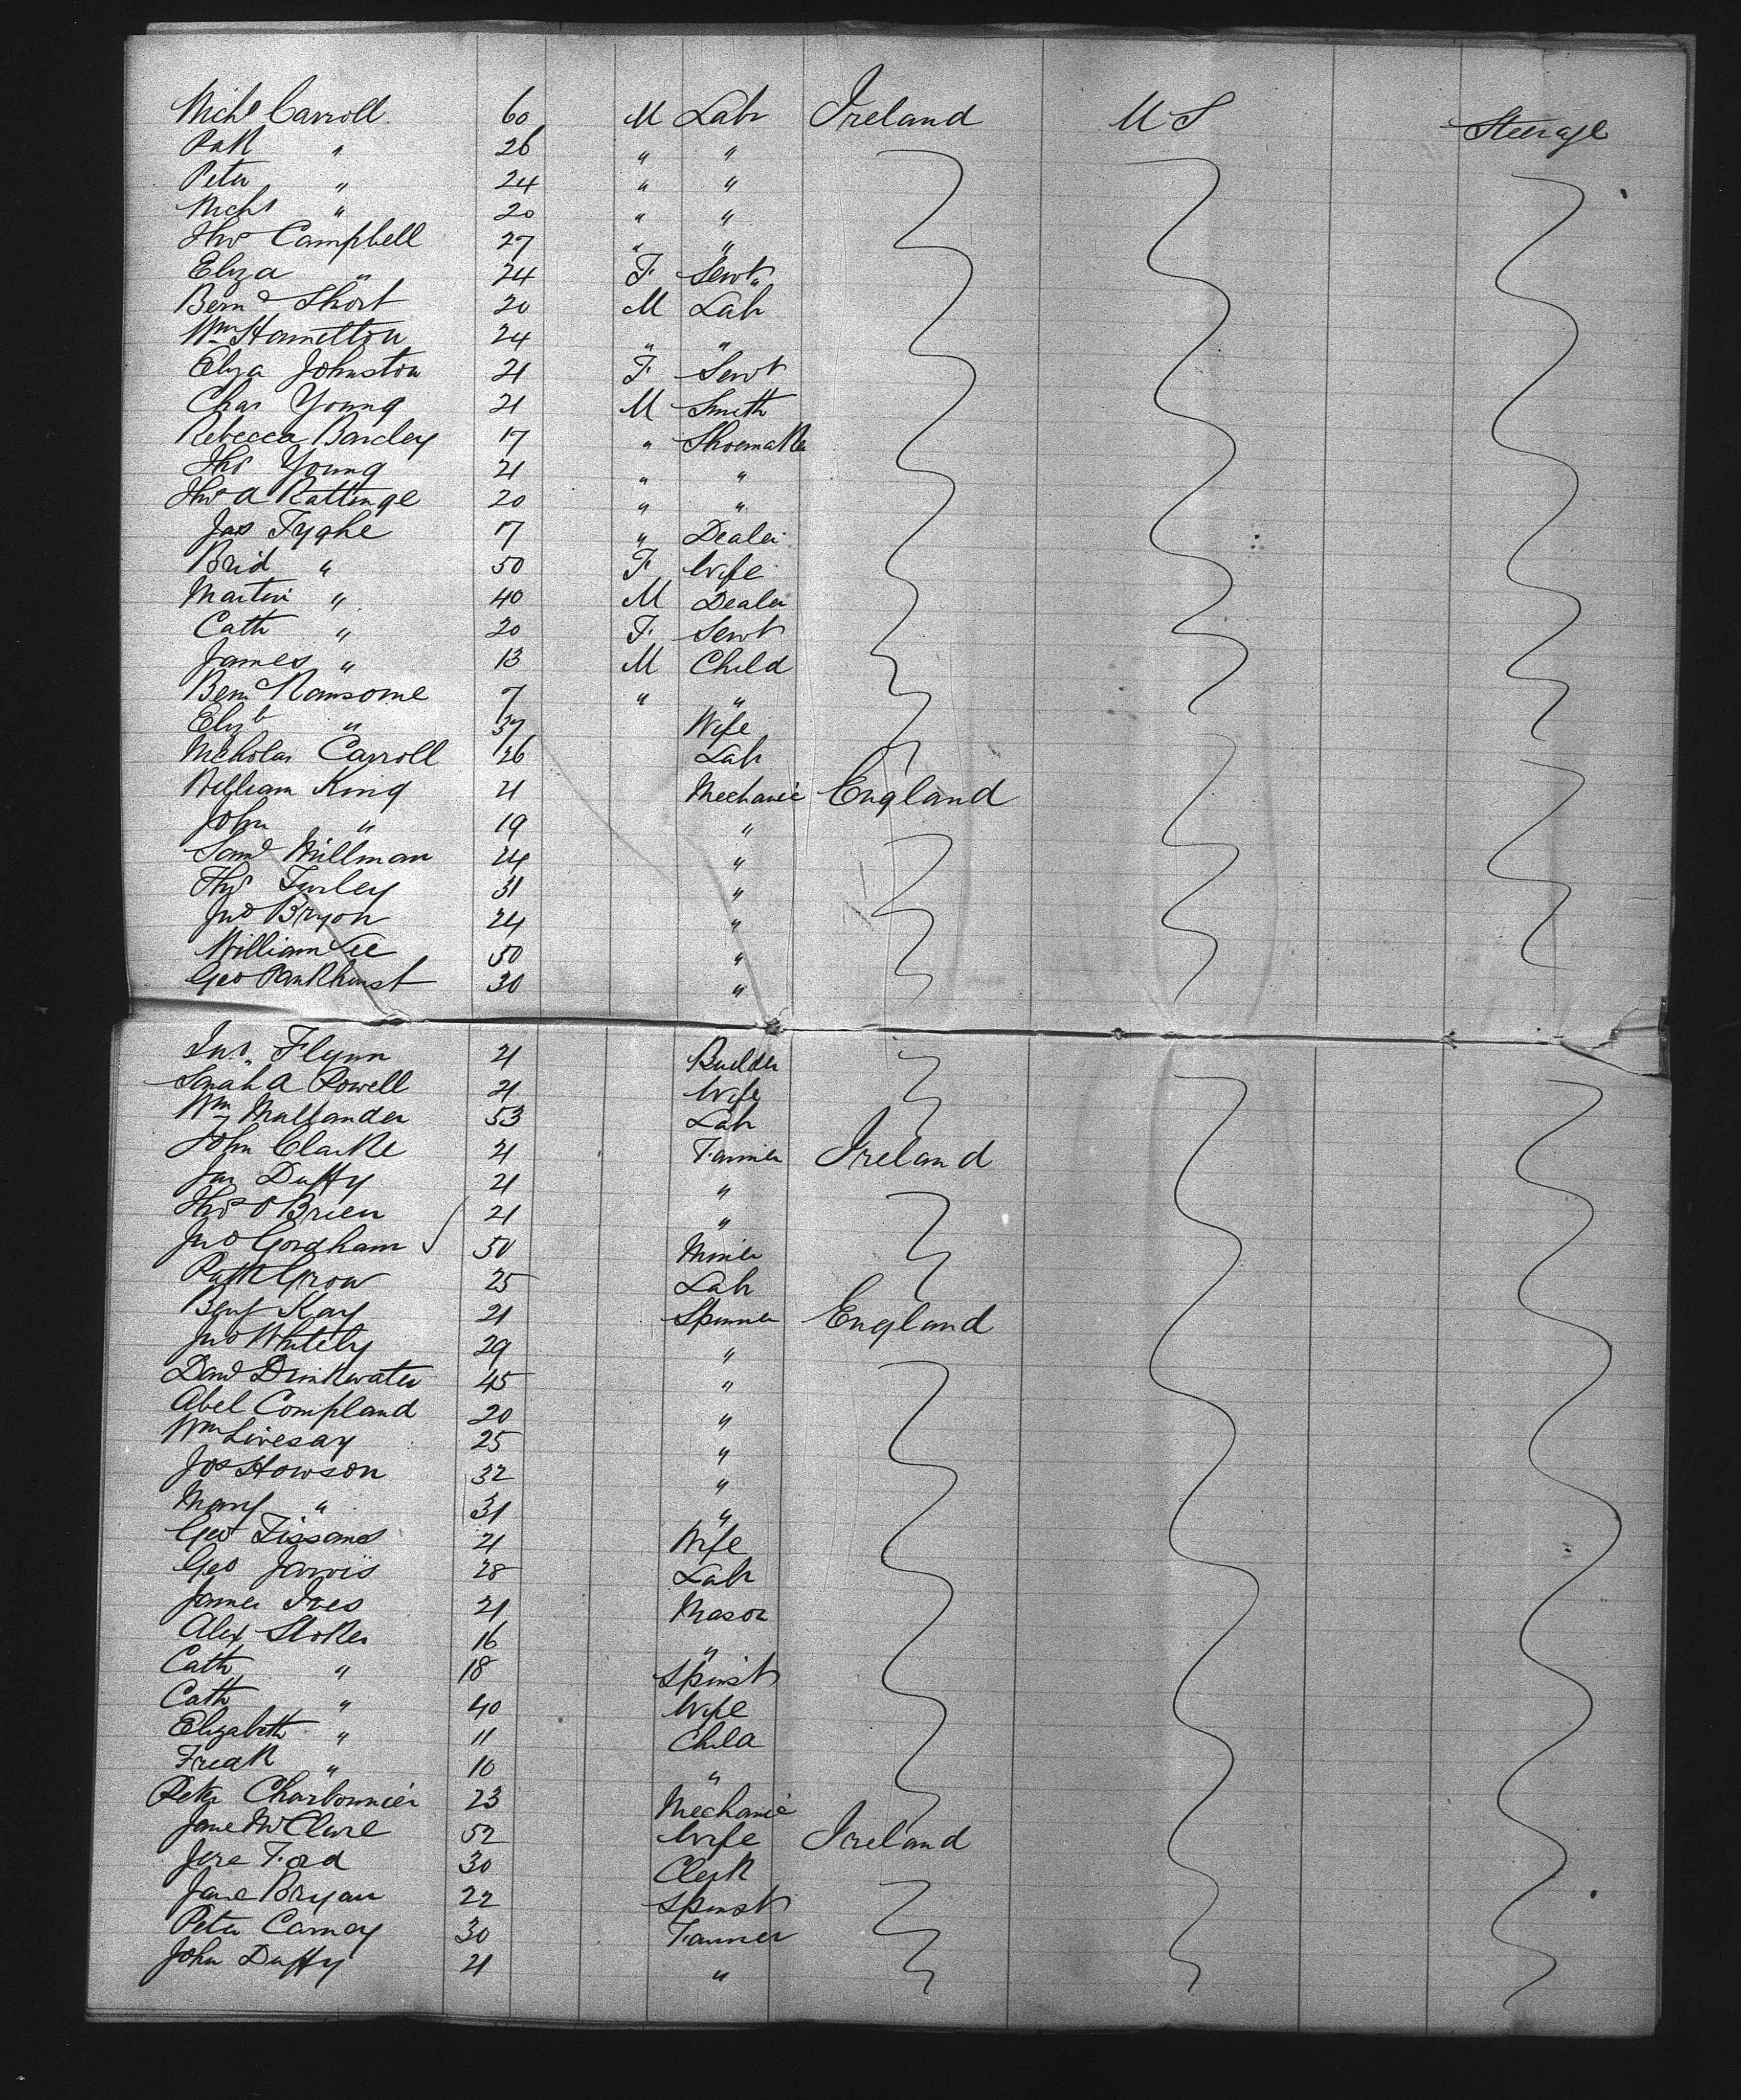 Michl Carroll 60 M Labr Ireland U S Steerage
Patk " 26 " "
Peter " 24 " "
Michl " 20 " "
Thos Campbell 27 " "
Eliza " 24 F Servt "
Bernd Short 20 M Labr
Wm Hamilton 24 " "
Eliza Johnston 21 F Servt
Chas Young 21 M Smith
Rebecca Barcley 17 " Shoemaker
Thos Young 21 " "
Thos A Rattinge 20 " "
Jas Tyghe 17 " Dealer
Brid " 50 F Wife
Martin " 40 M Dealer
Cath " 20 F Servt
James " 13 M Child
Bernd Ransome 7 " "
Elizb " 37 Wife
Nicholas Carroll 26 Labr
William King 21 Mechanic England
John " 19 "
Saml Willman 24 "
Thos Turley 31 "
Jno Bryon 24 "
William Lee 50 "
Geo Pankhurst 30 "
Flynn 21 Builder
Sarah A Powell 21 Wife
Wm Mallander 53 Labr
John Clarke 21 Farmer Ireland
Jas Duffy 21 "
Thos O Brien 21 "
Jno Gordham 50 Miner
Patk Grow 25 Labr
Benj Kay 21 Spinner England
Jno Whitely 29 "
Davd Drinkwater 45 "
Abel Compland 20 "
Wm Livesay 25 "
Jos Howson 32 "
Mary " 31 "
Geo Fissand 21 Wife
Geo Jarvis 28 Labr
James Ives 21 Mason
Alex Stoker 16 "
Cath " 18 Spinst
Cath " 40 Wife
Elizabeth " 11 Child
Fredk " 10 "
Peter Charbonnier 23 Mechanic
Jane McClure 52 Wife Ireland
Jere Ford 30 Clerk
Jane Bryan 22 Spinst
Peter Carney 30 Farmer
John Duffy 21 "